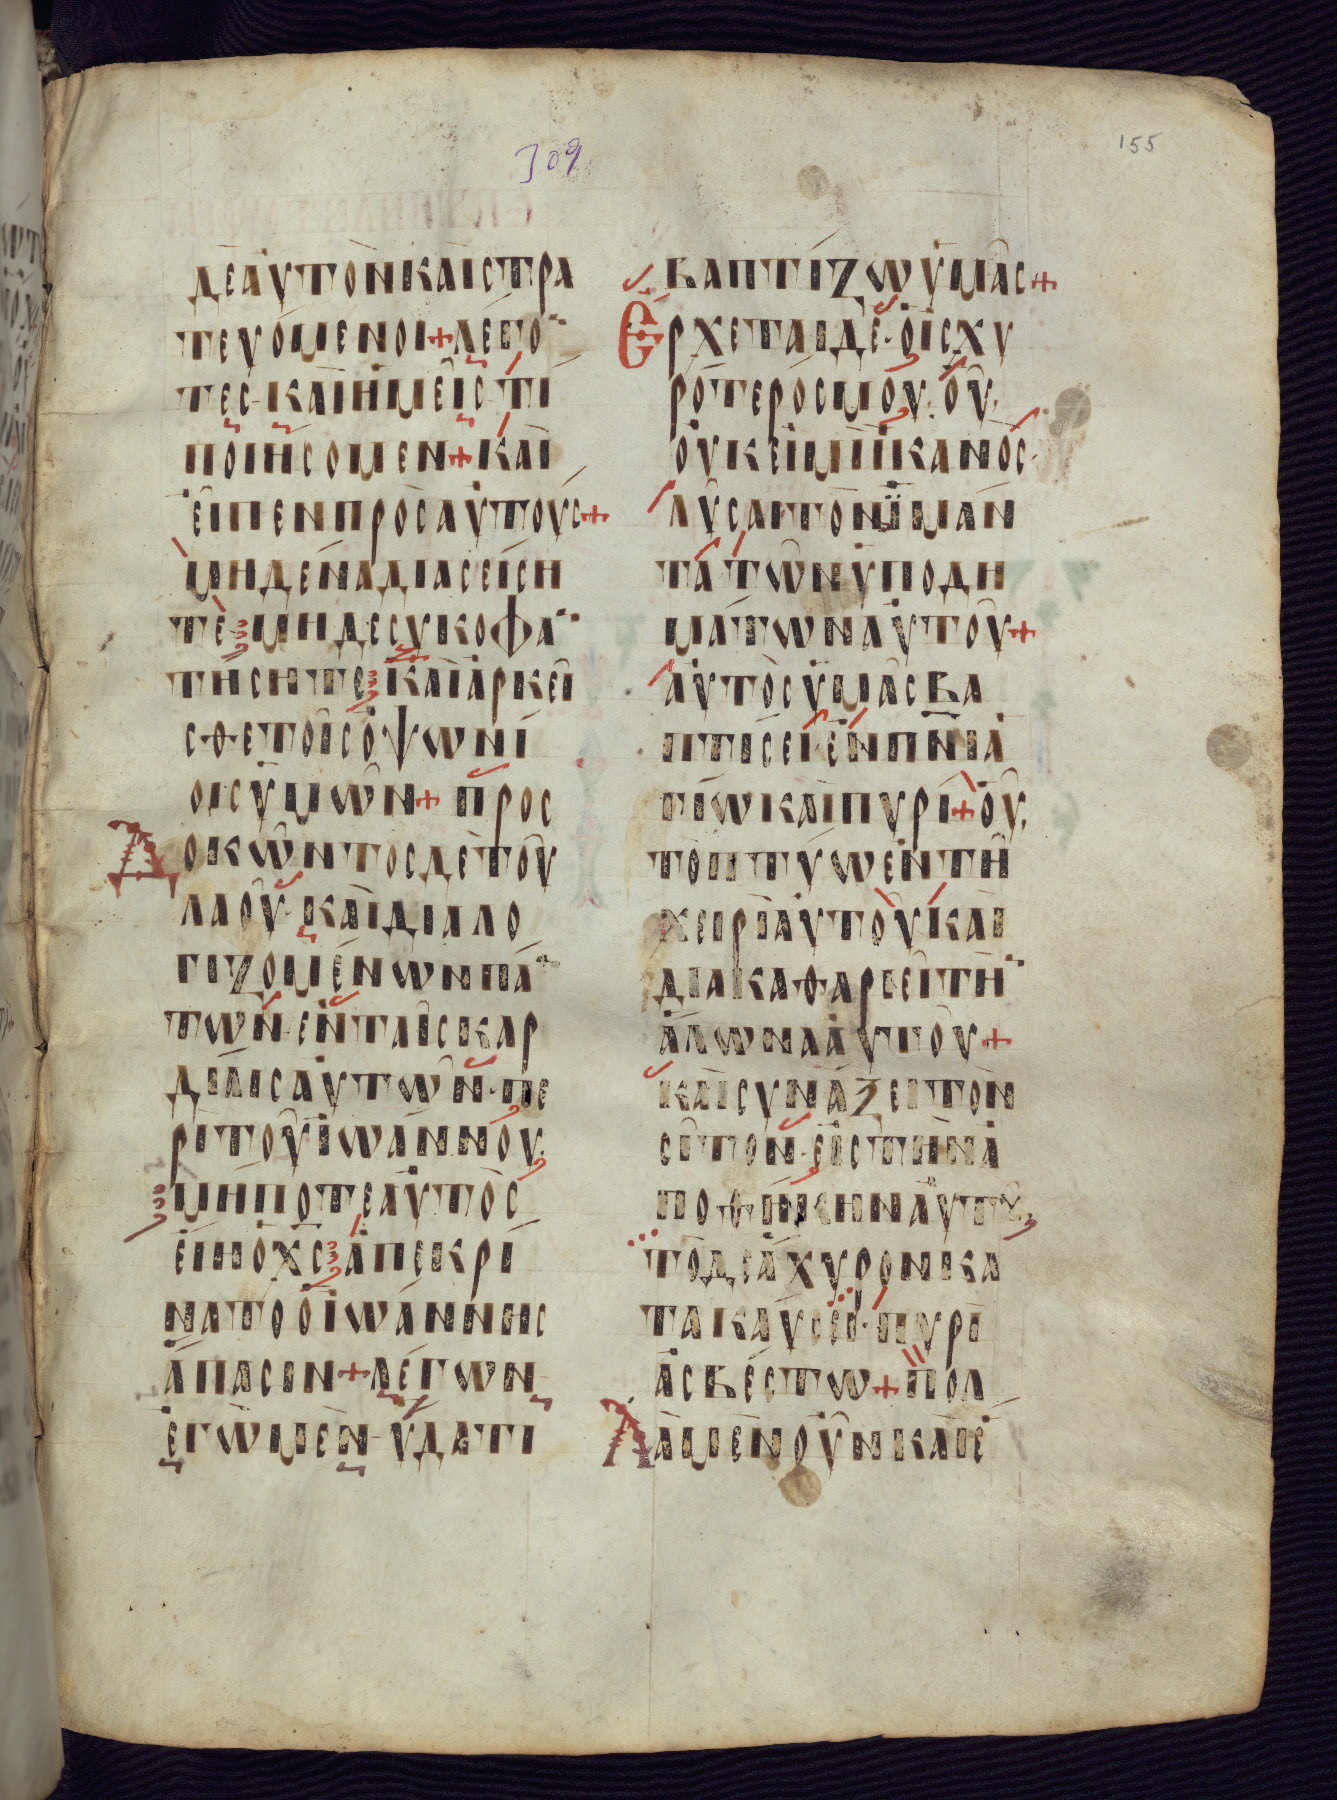 309
155
δὲ αὐτὸν καὶ στρα
τευόμενοι + λέγο
τες · καὶ ἡμεῖς τί
ποιήσομεν + καὶ
εἶπεν πρὸς αὐτούς +
μηδένα διασείση
τε · μηδὲ συκοφα
τήσητε · καὶ ἀρκεῖ
σθε τοῖς ὀψωνί
οις ὑμῶν + προσ
Δοκῶντος δὲ τοῦ
λαοῦ · καὶ διαλο
γιζομένων πά
των · ἐν ταῖς καρ
δίαις αὐτῶν · πε
ρὶ τοῦ ἰωάννου ·
μήποτε αὐτὸς
εἴη ὁ χς · ἀπεκρί
νατο ὁ ἰωάννης
ἅπασιν + λέγων
ἐγὼ μὲν · ὕδατι
βαπτίζω ὑμᾶς +
Ἔρχεται δὲ · ὁ ἰσχυ
ρότερός μου · οὗ
οὐκ εἰμὶ ἱκανός ·
λῦσαι τὸν ἱμάν
τα · τῶν ὑποδη
μάτων αὐτοῦ +
αὐτὸς ὑμᾶς βα
πτίσει · ἐν πνι ἁ
γίω καὶ πυρί + οὗ
τὸ πτύω ἐν τῆ
χειρὶ αὐτοῦ · καὶ
διακαθαριεῖ τὴ
ἅλωνα αὐτοῦ +
καὶ συνάξει τὸν
σῖτον · εἰς τὴν ἀ
ποθήκην αὐτοῦ
τὸ δὲ ἄχυρον κα
τακαύσει · πυρὶ
ἀσβέστω + πολ
Λὰ μὲν οὖν καὶ ἕ